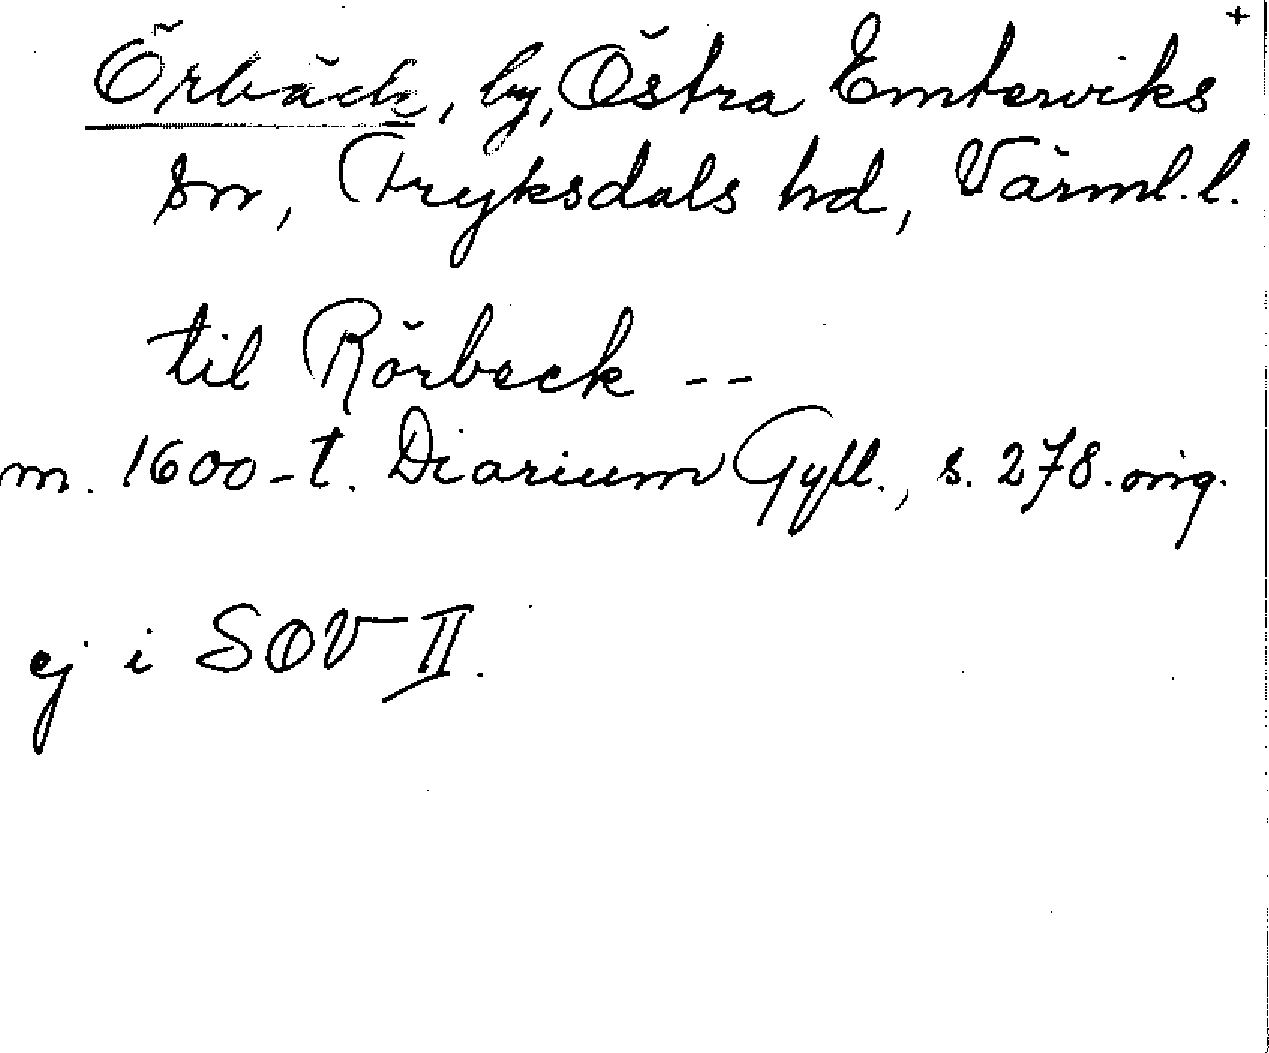 +
Örbäck, by, Östra Emterviks
sn, Fryksdals hd, Värml. l.
til Rörbeck --
m. 1600-t. Diarium Gyll., s. 278. orig.
ej i SOV II.